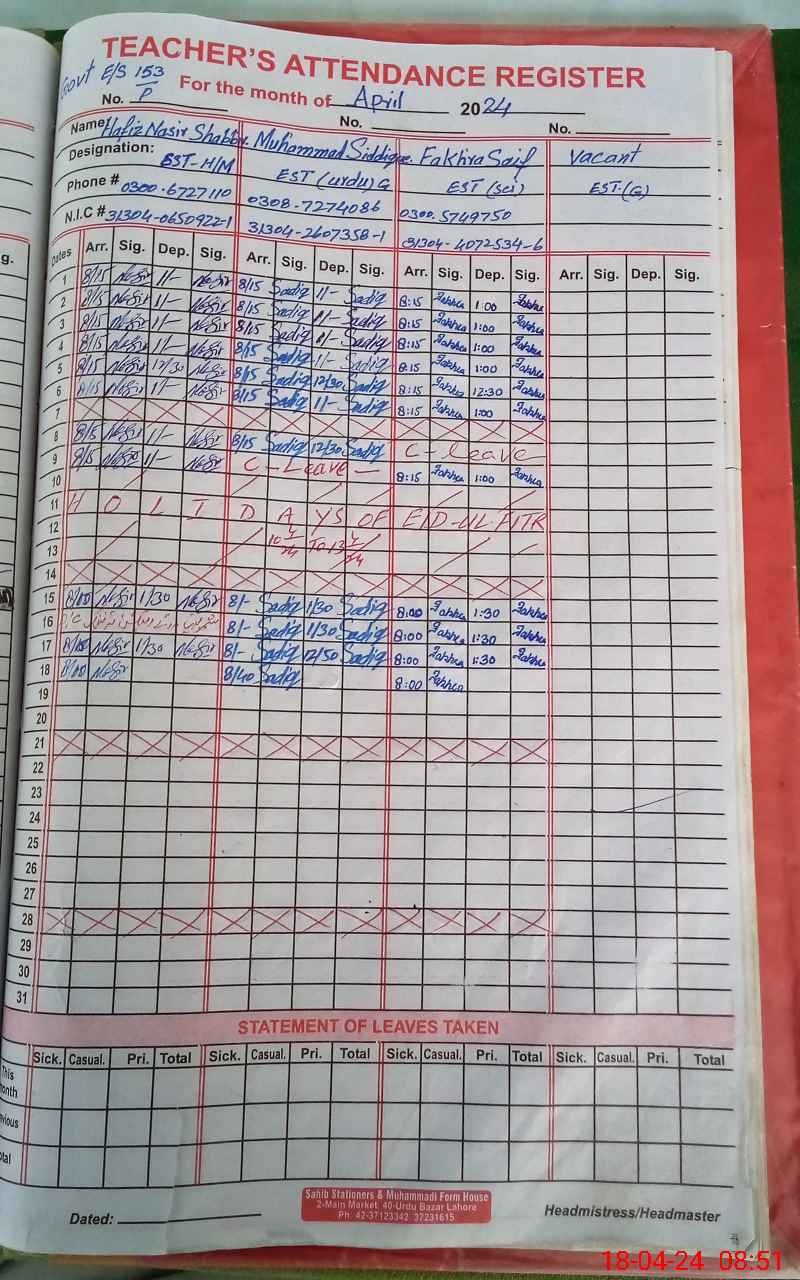 TEACHER'S ATTENDANCE REGISTER
Govt E/S 153/P
For the month of April 2024
No. No. No.
Name: Hafiz Nasir Shabbir Muhammad Siddique Fakhra Saif Vacant
Designation: EST-H/M EST (urdu) G EST (sci) EST-(G)
Phone # 0300-6727110 0308-7274086 0300-5749750
N.I.C # 31304-0650922-1 31304-2607358-1 31304-4072534-6
Dates Arr. Sig. Dep. Sig. Arr. Sig. Dep. Sig. Arr. Sig. Dep. Sig. Arr. Sig. Dep. Sig.
1 8/15 Nasir 1/- Nasir 8/15 Sadiq 1/- Sadiq 8:15 Fakhra 1:00 Fakhra
2 8/15 Nasir 1/- Nasir 8/15 Sadiq 1/- Sadiq 8:15 Fakhra 1:00 Fakhra
3 8/15 Nasir 1/- Nasir 8/15 Sadiq 1/- Sadiq 8:15 Fakhra 1:00 Fakhra
4 8/15 Nasir 1/- Nasir 8/15 Sadiq 1/- Sadiq 8:15 Fakhra 1:00 Fakhra
5 8/15 Nasir 12/30 Nasir 8/15 Sadiq 12/30 Sadiq 8:15 Fakhra 12:30 Fakhra
6 8/15 Nasir 1/- Nasir 8/15 Sadiq 1/- Sadiq 8:15 Fakhra 1:00 Fakhra
7
8 8/15 Nasir 1/- Nasir 8/15 Sadiq 12/30 Sadiq C-leave
9 8/15 Nasir 1/- Nasir C-Leave- 8:15 Fakhra 1:00 Fakhra
10
11 HOLIDAYS OF EID-UL FITR
12 10/4/24 To 13/4/24
13
14
15 8/00 Nasir 1/30 Nasir 8/- Sadiq 1/30 Sadiq 8:00 Fakhra 1:30 Fakhra
16 8/- Sadiq 1/30 Sadiq 8:00 Fakhra 1:30 Fakhra
17 8/00 Nasir 1/30 Nasir 8/- Sadiq 12/50 Sadiq 8:00 Fakhra 1:30 Fakhra
18 8/00 Nasir 8/40 Sadiq 8:00 Fakhra
19
20
21
22
23
24
25
26
27
28
29
30
31
STATEMENT OF LEAVES TAKEN
Sick. Casual. Pri. Total Sick. Casual. Pri. Total Sick. Casual. Pri. Total Sick. Casual. Pri. Total
This
onth
vious
tal
Sahib Stationers & Muhammadi Form House
2-Main Market 40-Urdu Bazar Lahore
Ph: 42-37123342 37231615
Dated: Headmistress/Headmaster
18-04-24 08:51